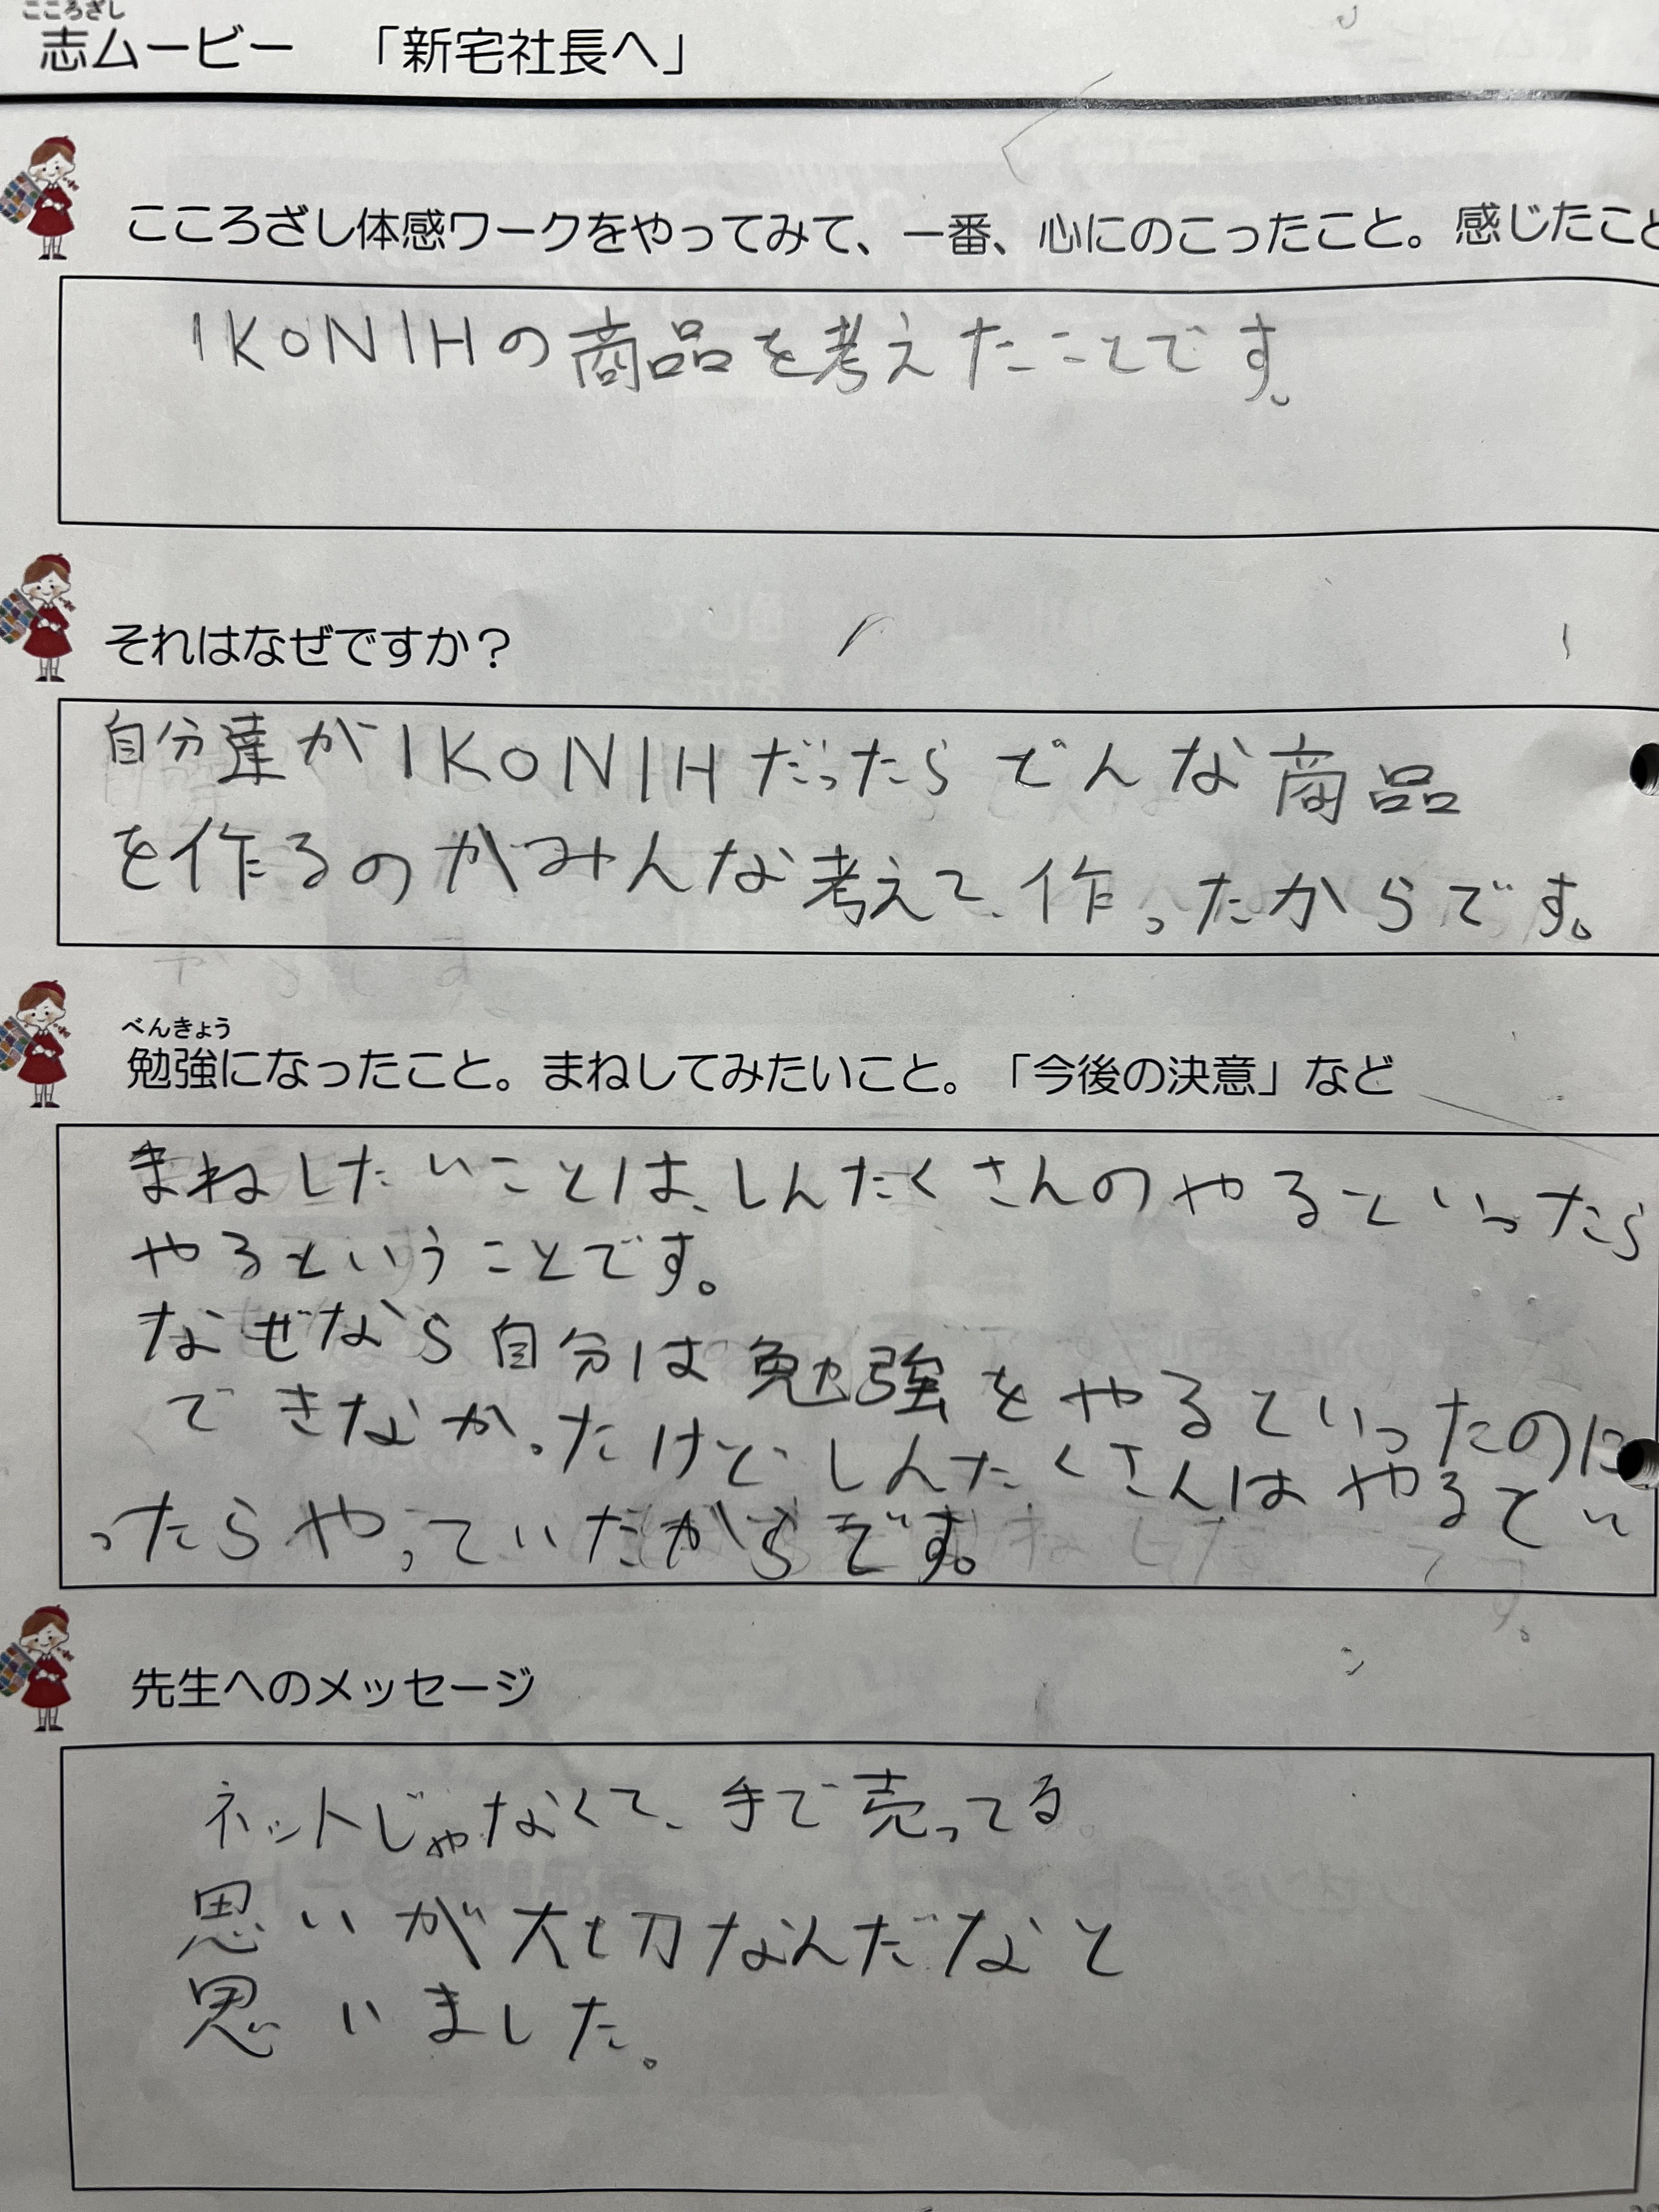 こころざし
志ムービー 「新宅社長へ」
こころざし体感ワークをやってみて、一番、心にのこったこと。感じたこと
IKONIHの商品を考えたことです。
それはなぜですか？
自分達がIKONIHだったらどんな商品
を作るのかみんな考えて、作ったからです。
べんきょう
勉強になったこと。まねしてみたいこと。「今後の決意」など
まねしたいことは、しんたくさんのやるといったら
やるということです。
なぜなら自分は勉強をやるといったのに
できなかったけど、しんたくさんはやるとい
ったらやっていたからです。
先生へのメッセージ
ネットじゃなくて、手で売ってる
思いが大切なんだなと
思いました。